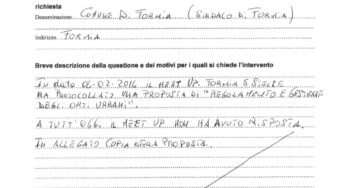 richiesta
Denominazione COMUNE DI FORMIA (SINDACO DI FORMIA)
Indirizzo FORMIA
Breve descrizione della questione e dei motivi per i quali si chiede l'intervento
IN DATA 06-02-2016 IL MEET UP FORMIA 5 STELLE
HA PROTOCOLLATO UNA PROPOSTA DI "REGOLAMENTO E GESTIONE
DEGLI ORTI URBANI".
A TUTT'OGGI IL MEET UP NON HA AVUTO RISPOSTA.
IN ALLEGATO COPIA DELLA PROPOSTA.